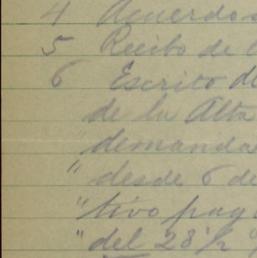 4 Acuerdos
5 Recibo de
6 Escrito de
de la Alta
demanda
" desde 6 de
" tivo pag
" del 28 1/2